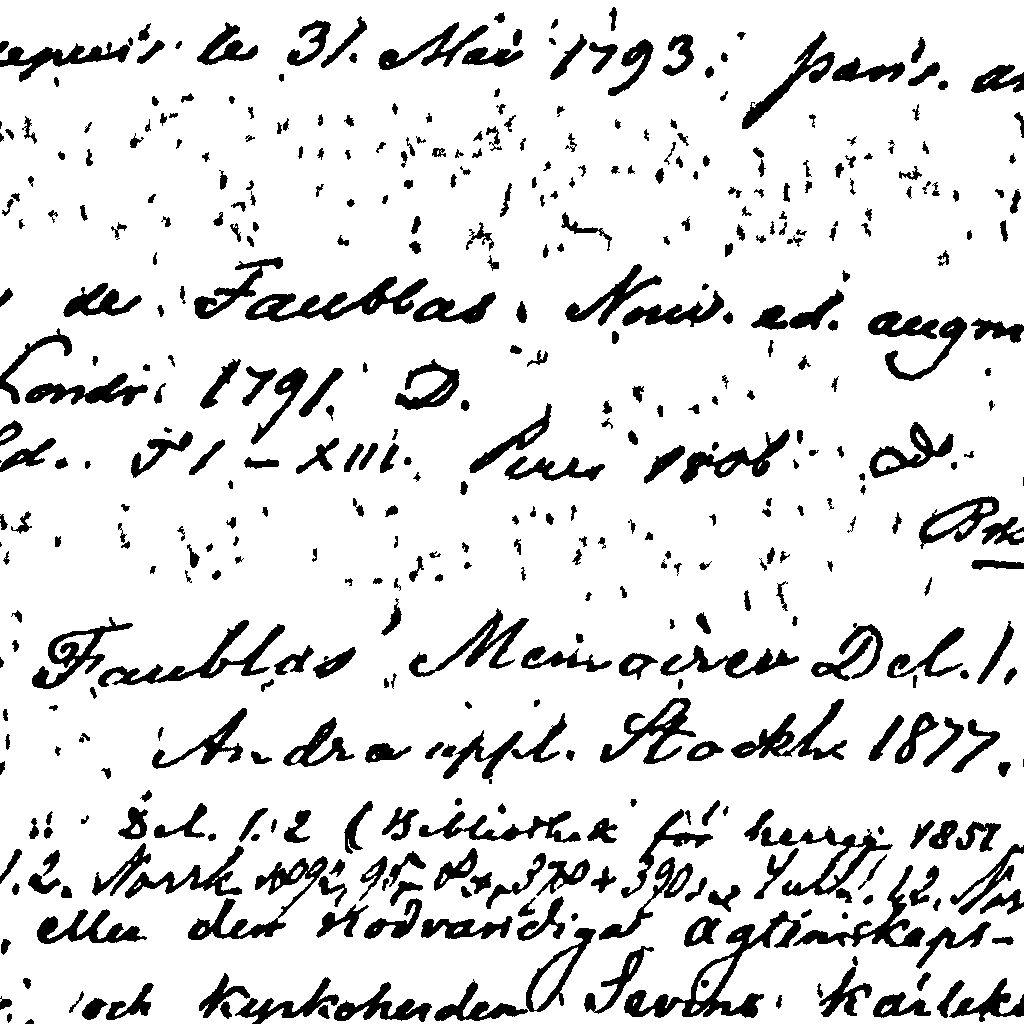 depuis le 31. Mai 1793. Paris. an
de Faublas. Nouv. ed. augm
Londr. 1791. D.
Ed. T 1 - XIII. Paris 1806 D.
Faublas Memoirer Del. 1.
Andra uppl. Stockh 1877.
" Del. 1. 2 (Bibliothek för herrar 1851
1.2. Norsk 1892, 95, 8:o, 370 + 390 s. 1.2. Nor
eller den nödvändiga ägtenskaps-
och kyrkoherden Sevins kärleks